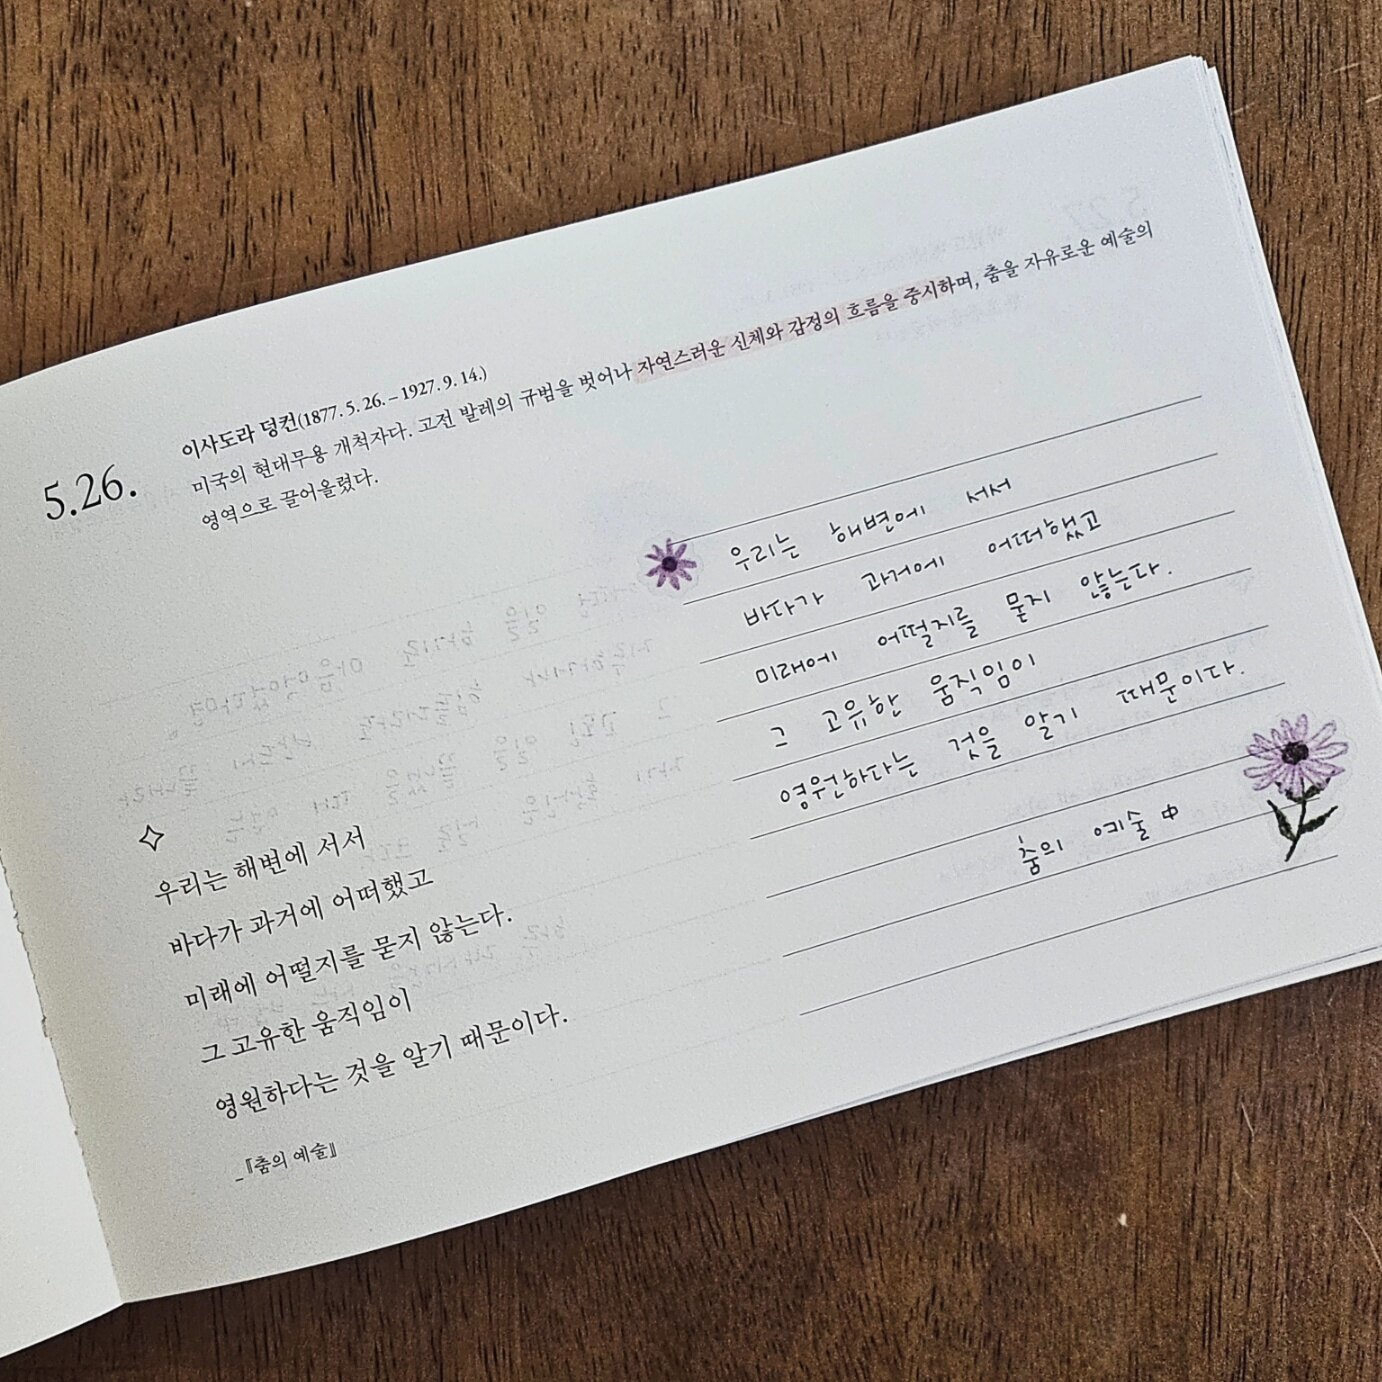 5.26.
이사도라 덩컨(1877. 5. 26. – 1927. 9. 14.)
미국의 현대무용 개척자다. 고전 발레의 규범을 벗어나 자연스러운 신체와 감정의 흐름을 중시하며, 춤을 자유로운 예술의
영역으로 끌어올렸다.
우리는 해변에 서서
바다가 과거에 어떠했고
미래에 어떨지를 묻지 않는다.
그 고유한 움직임이
영원하다는 것을 알기 때문이다.
_『춤의 예술』
우리는 해변에 서서
바다가 과거에 어떠했고
미래에 어떨지를 묻지 않는다.
그 고유한 움직임이
영원하다는 것을 알기 때문이다.
춤의 예술 中